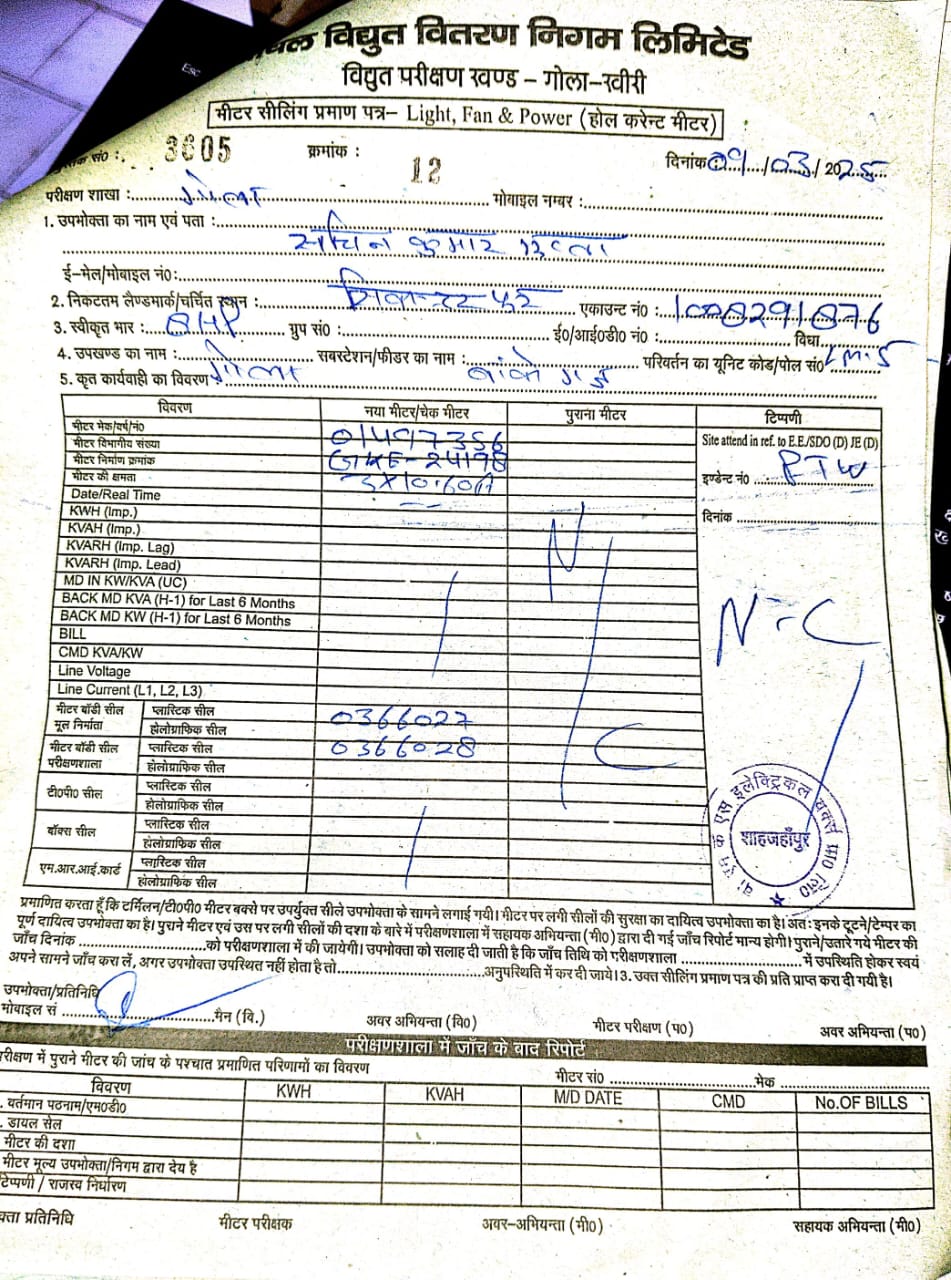 विद्युत वितरण निगम लिमिटेड
विद्युत परीक्षण खण्ड – गोला-खीरी
मीटर सीलिंग प्रमाण पत्र– Light, Fan & Power (होल करेन्ट मीटर)
सं0 : 3605 क्रमांक : 12 दिनांक 09/03/2025
परीक्षण शाखा : गोला मोबाइल नम्बर :
1. उपभोक्ता का नाम एवं पता :
सचिन कुमार
ई-मेल/मोबाइल नं0:
2. निकटतम लैण्डमार्क/चर्चित स्थान : सिकन्दरपुर एकाउन्ट नं0 : 1008291876
3. स्वीकृत भार : 8HP ग्रुप सं0 : ई0/आई0डी0 नं0 : विधा LM-5
4. उपखण्ड का नाम : गोला सबस्टेशन/फीडर का नाम : बांके गंज परिवर्तन का यूनिट कोड/पोल सं0
5. कृत कार्यवाही का विवरण
विवरण नया मीटर/चेक मीटर पुराना मीटर टिप्पणी
मीटर मेक/वर्ष/नं0 01497356 Site attend in ref. to E.E./SDO (D) JE (D)
मीटर विभागीय संख्या
मीटर निर्माण क्रमांक इण्डेन्ट नं0 PTW
मीटर की क्षमता 3X10-60A
Date/Real Time दिनांक
KWH (Imp.)
KVAH (Imp.) N
KVARH (Imp. Lag)
KVARH (Imp. Lead)
MD IN KW/KVA (UC)
BACK MD KVA (H-1) for Last 6 Months N-C
BACK MD KW (H-1) for Last 6 Months
BILL
CMD KVA/KW
Line Voltage
Line Current (L1, L2, L3)
मीटर बॉडी सील प्लास्टिक सील 0366027
मूल निर्माता होलोग्राफिक सील
मीटर बॉडी सील प्लास्टिक सील 0366028 C
परीक्षणशाला होलोग्राफिक सील
टी0पी0 सील प्लास्टिक सील
होलोग्राफिक सील
बॉक्स सील प्लास्टिक सील
होलोग्राफिक सील
एम.आर.आई.कार्ड प्लास्टिक सील
होलोग्राफिक सील
एस इलेक्ट्रिकल वर्क्स प्रा0 लि0
शाहजहाँपुर
प्रमाणित करता हूँ कि टर्मिलन/टी0पी0 मीटर बक्से पर उपर्युक्त सीले उपभोक्ता के सामने लगाई गयी। मीटर पर लगी सीलों की सुरक्षा का दायित्व उपभोक्ता का है। अतः इनके टूटने/टेम्पर का
पूर्ण दायित्व उपभोक्ता का है। पुराने मीटर एवं उस पर लगी सीलों की दशा के बारे में परीक्षणशाला में सहायक अभियन्ता (मी0) द्वारा दी गई जाँच रिपोर्ट मान्य होगी। पुराने/उतारे गये मीटर की
जाँच दिनांक को परीक्षणशाला में की जायेगी। उपभोक्ता को सलाह दी जाती है कि जाँच तिथि को परीक्षणशाला में उपस्थिति होकर स्वयं
अपने सामने जाँच करा लें, अगर उपभोक्ता उपस्थित नहीं होता है तो अनुपस्थिति में कर दी जाये। 3. उक्त सीलिंग प्रमाण पत्र की प्रति प्राप्त करा दी गयी है।
उपभोक्ता/प्रतिनिधि
मोबाइल सं मैन (वि.) अवर अभियन्ता (वि0) मीटर परीक्षण (प0) अवर अभियन्ता (प0)
परीक्षणशाला में जाँच के बाद रिपोर्ट
परीक्षण में पुराने मीटर की जांच के पश्चात प्रमाणित परिणामों का विवरण मीटर सं0 मेक
विवरण KWH KVAH M/D DATE CMD No.OF BILLS
वर्तमान पठनाम/एम0डी0
डायल सेल
मीटर की दशा
मीटर मूल्य उपभोक्ता/निगम द्वारा देय है
टिप्पणी / राजस्व निर्धारण
प्रतिनिधि मीटर परीक्षक अवर-अभियन्ता (मी0) सहायक अभियन्ता (मी0)